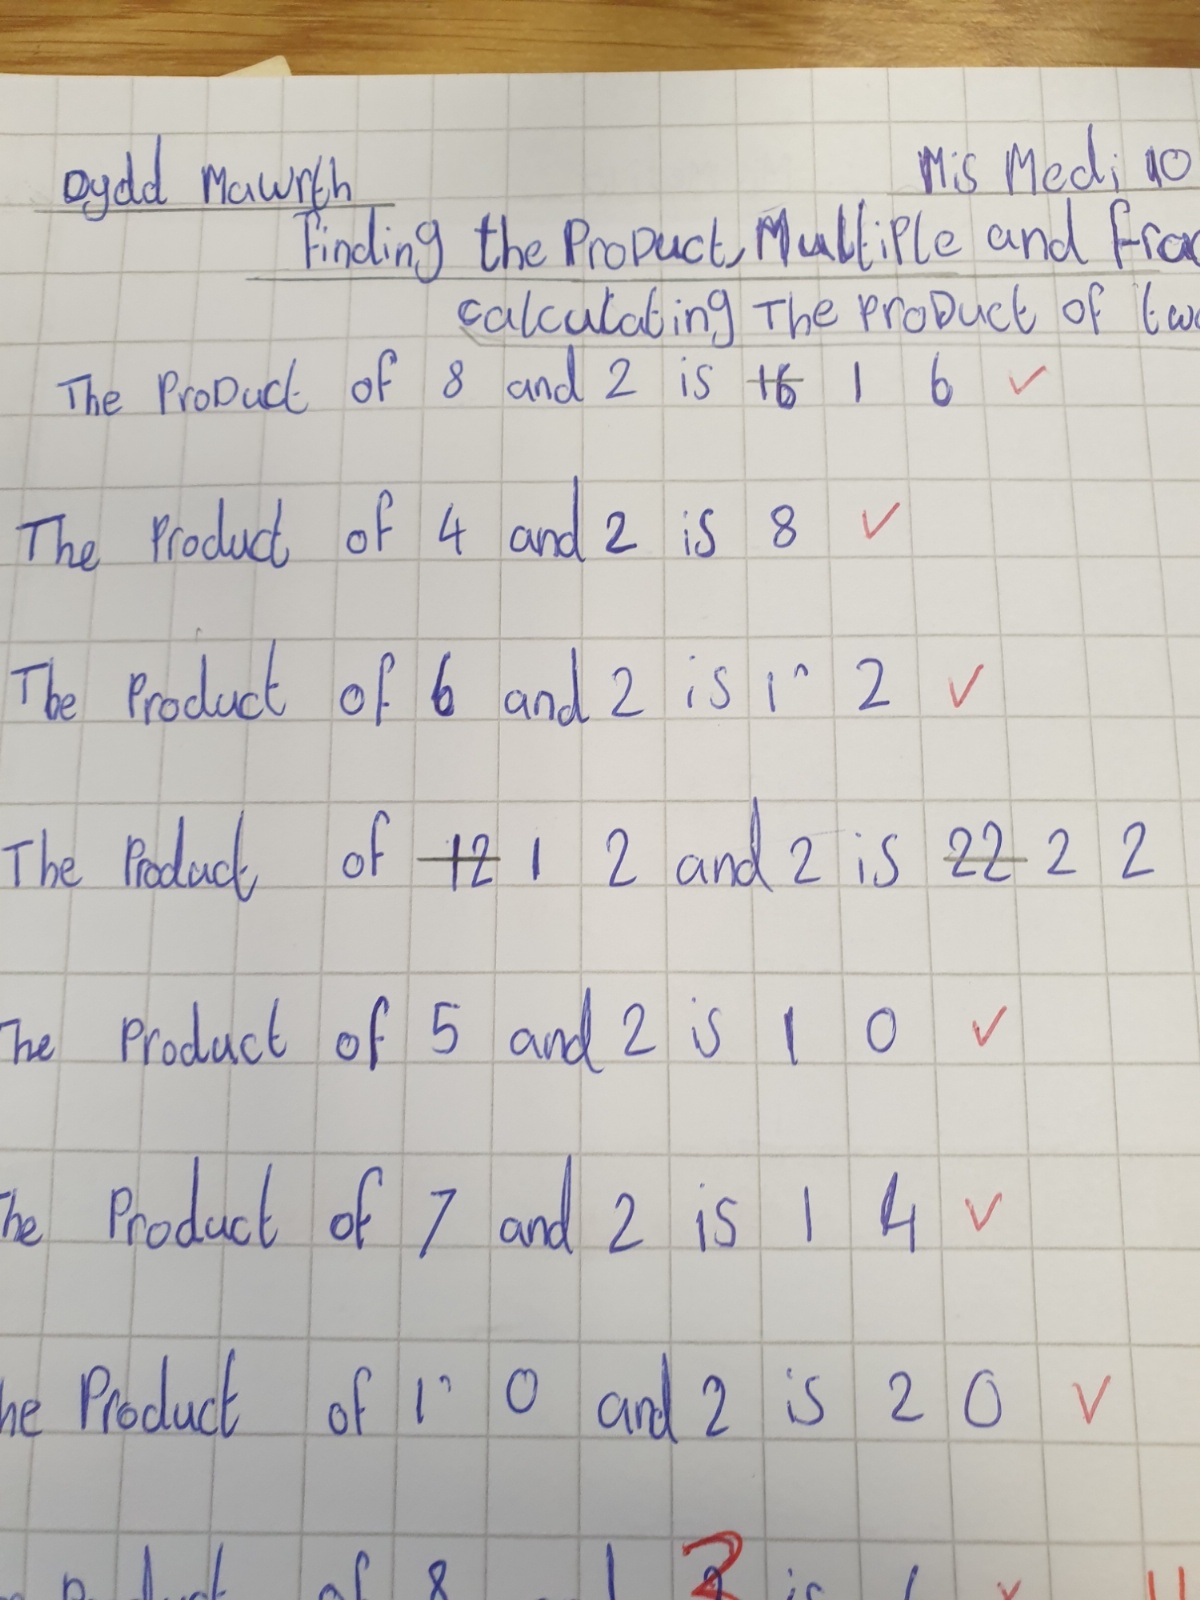 Dydd Mawrth
Mis Medi 10
Finding the Product, Multiple and
calculating The Product of
The Product of 8 and 2 is 16 1 6 ✓
The Product of 4 and 2 is 8 ✓
The Product of 6 and 2 is 1 2 ✓
The Product of 12 1 2 and 2 is 22 2 2
The Product of 5 and 2 is 1 0 ✓
The Product of 7 and 2 is 1 4 ✓
he Product of 1 0 and 2 is 2 0 ✓
of 8 2 is